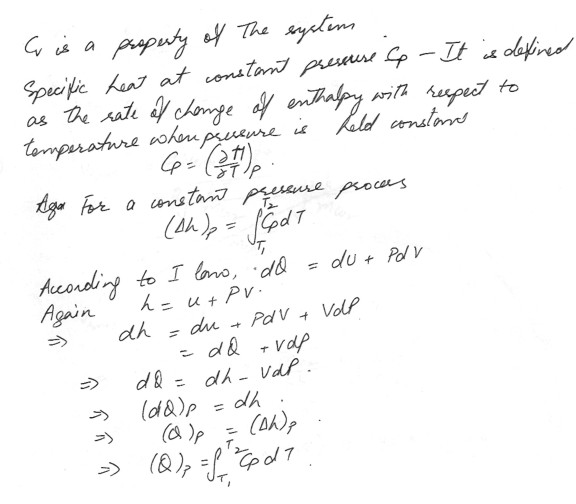 Cv is a property of The system.
Specific heat at constant pressure Cp – It is defined
as the rate of change of enthalpy with respect to
temperature when pressure is held constant
Cp = (∂H/∂T)p.
For a constant pressure process
(Δh)p = ∫T1T2 Cp dT
According to I law, dQ = dU + PdV
Again h = u + PV.
⇒ dh = du + PdV + VdP
= dQ + Vdp
⇒ dQ = dh – VdP.
⇒ (dQ)p = dh.
⇒ (Q)p = (Δh)p
⇒ (Q)p = ∫T1T2 Cp dT.